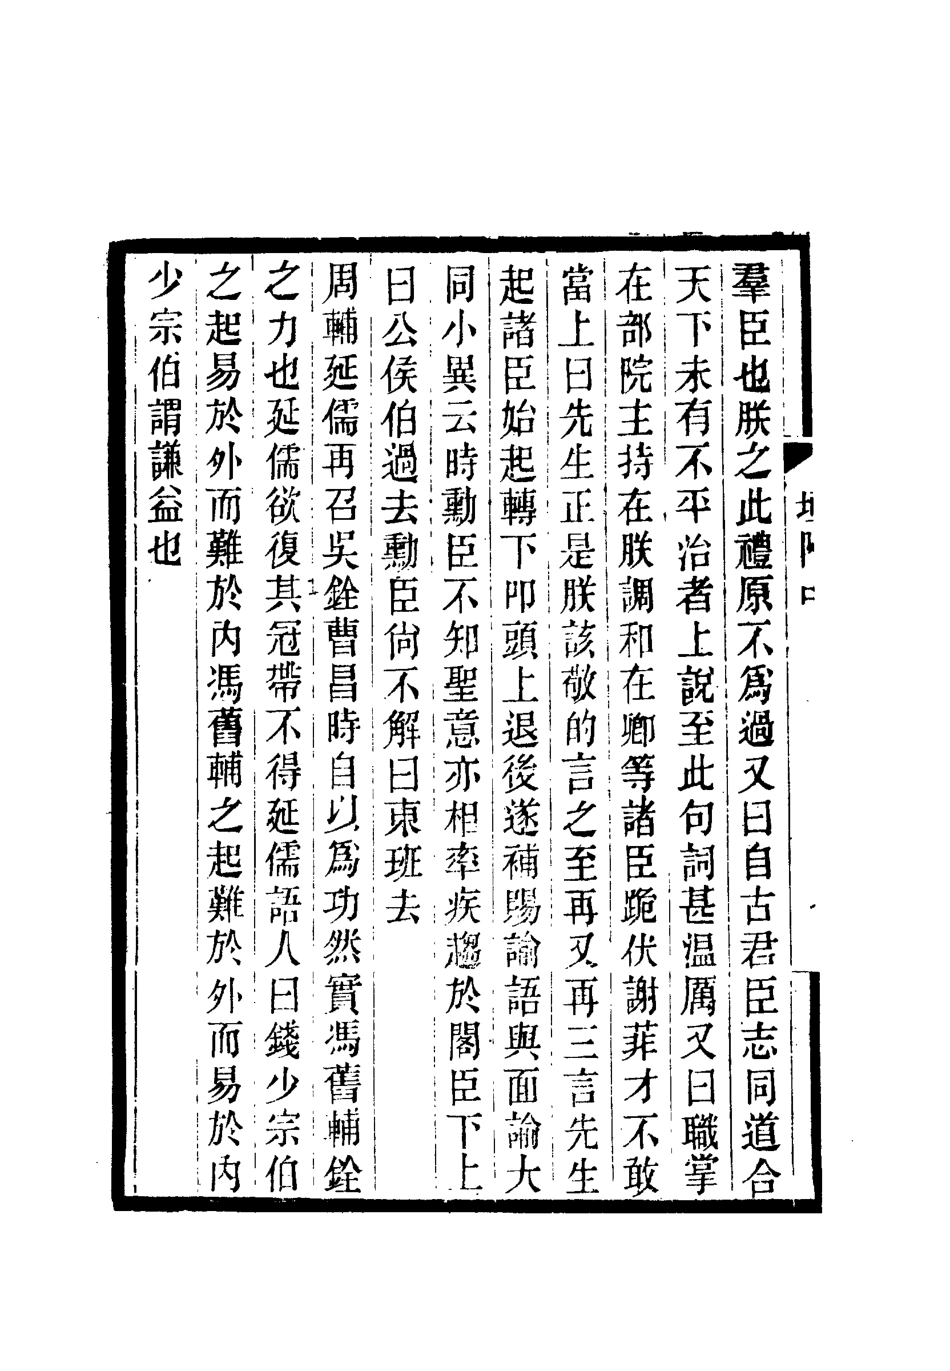 羣臣也朕之此禮原不爲過又曰自古君臣志同道合
天下未有不平治者上說至此句詞甚温厲又曰職掌
在部院主持在朕調和在卿等諸臣跪伏謝菲才不敢
當上曰先生正是朕該敬的言之至再又再三言先生
起諸臣始起轉下叩頭上退後遂補賜諭語與面諭大
同小異云時勳臣不知聖意亦相率疾趨於閣臣下上
曰公侯伯過去勳臣尙不解曰東班去
周輔延儒再召吳銓曹昌時自以爲功然實馮舊輔銓
之力也延儒欲復其冠帶不得延儒語人曰錢少宗伯
之起易於外而難於內馮舊輔之起難於外而易於內
少宗伯謂謙益也